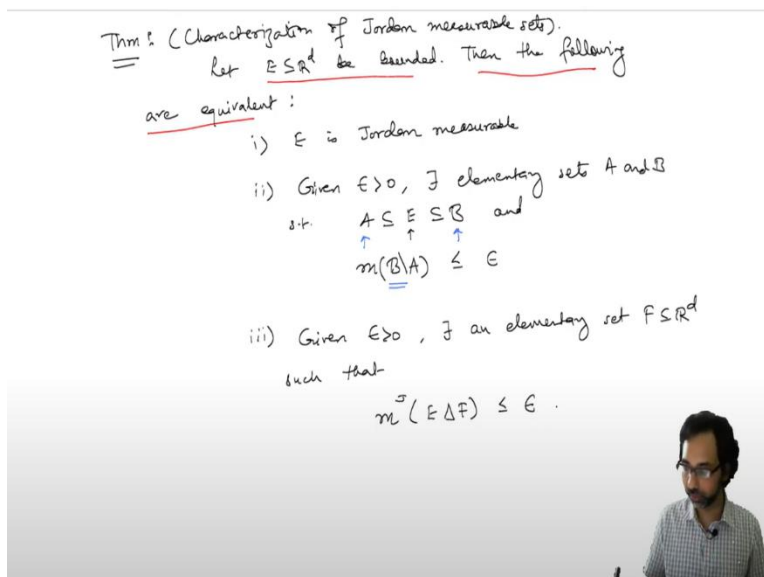 Thm : (Characterization of Jordan measurable sets).
Let E ⊆ ℝᵈ be bounded. Then the following
are equivalent :
i) E is Jordan measurable
ii) Given ϵ>0, ∃ elementary sets A and B
s.t. A ⊆ E ⊆ B and
m(B\A) ≤ ϵ
iii) Given ϵ>0, ∃ an elementary set F ⊆ ℝᵈ
such that
mᴶ(E Δ F) ≤ ϵ .